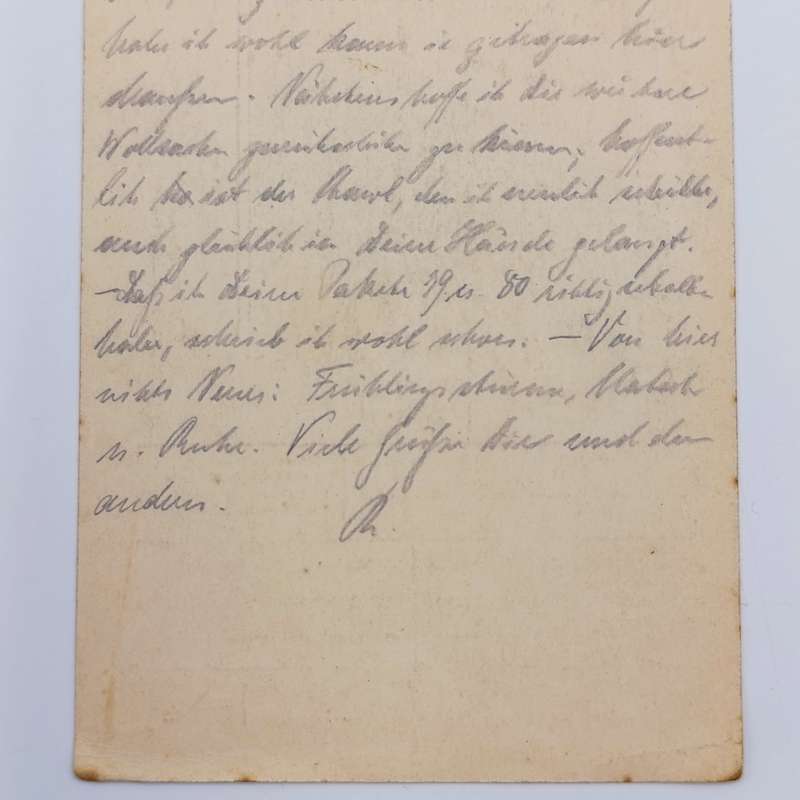 habe ich wohl kaum je getragen hier
draußen. Nächstens hoffe ich die weitere
Wollsachen zurückschicken zu können, hoffent-
lich ist der Shawl, den ich neulich schickte,
auch glücklich in Deine Hände gelangt.
— Daß ich Deine Pakete 79 u. 80 richtig erhalten
habe, schrieb ich wohl schon. — Von hier
nichts Neues: Frühlingsstürme, Matsch
u. Ruhe. Viele Grüße Dir und den
andern.
R.